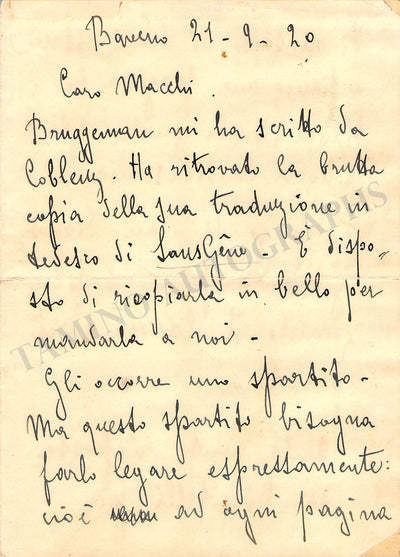 Baveno 21-9-20
Caro Macchi.
Bruggeman mi ha scritto da
Coblenz. Ha ritrovato la brutta
copia della sua traduzione in
tedesco di SansGêne. È dispo=
sto di ricopiarla in bello per
mandarla a noi -
Gli occorre uno spartito -
Ma questo spartito bisogna
farlo legare espressamente:
cioè ad ogni pagina
TAMINO AUTOGRAPHS